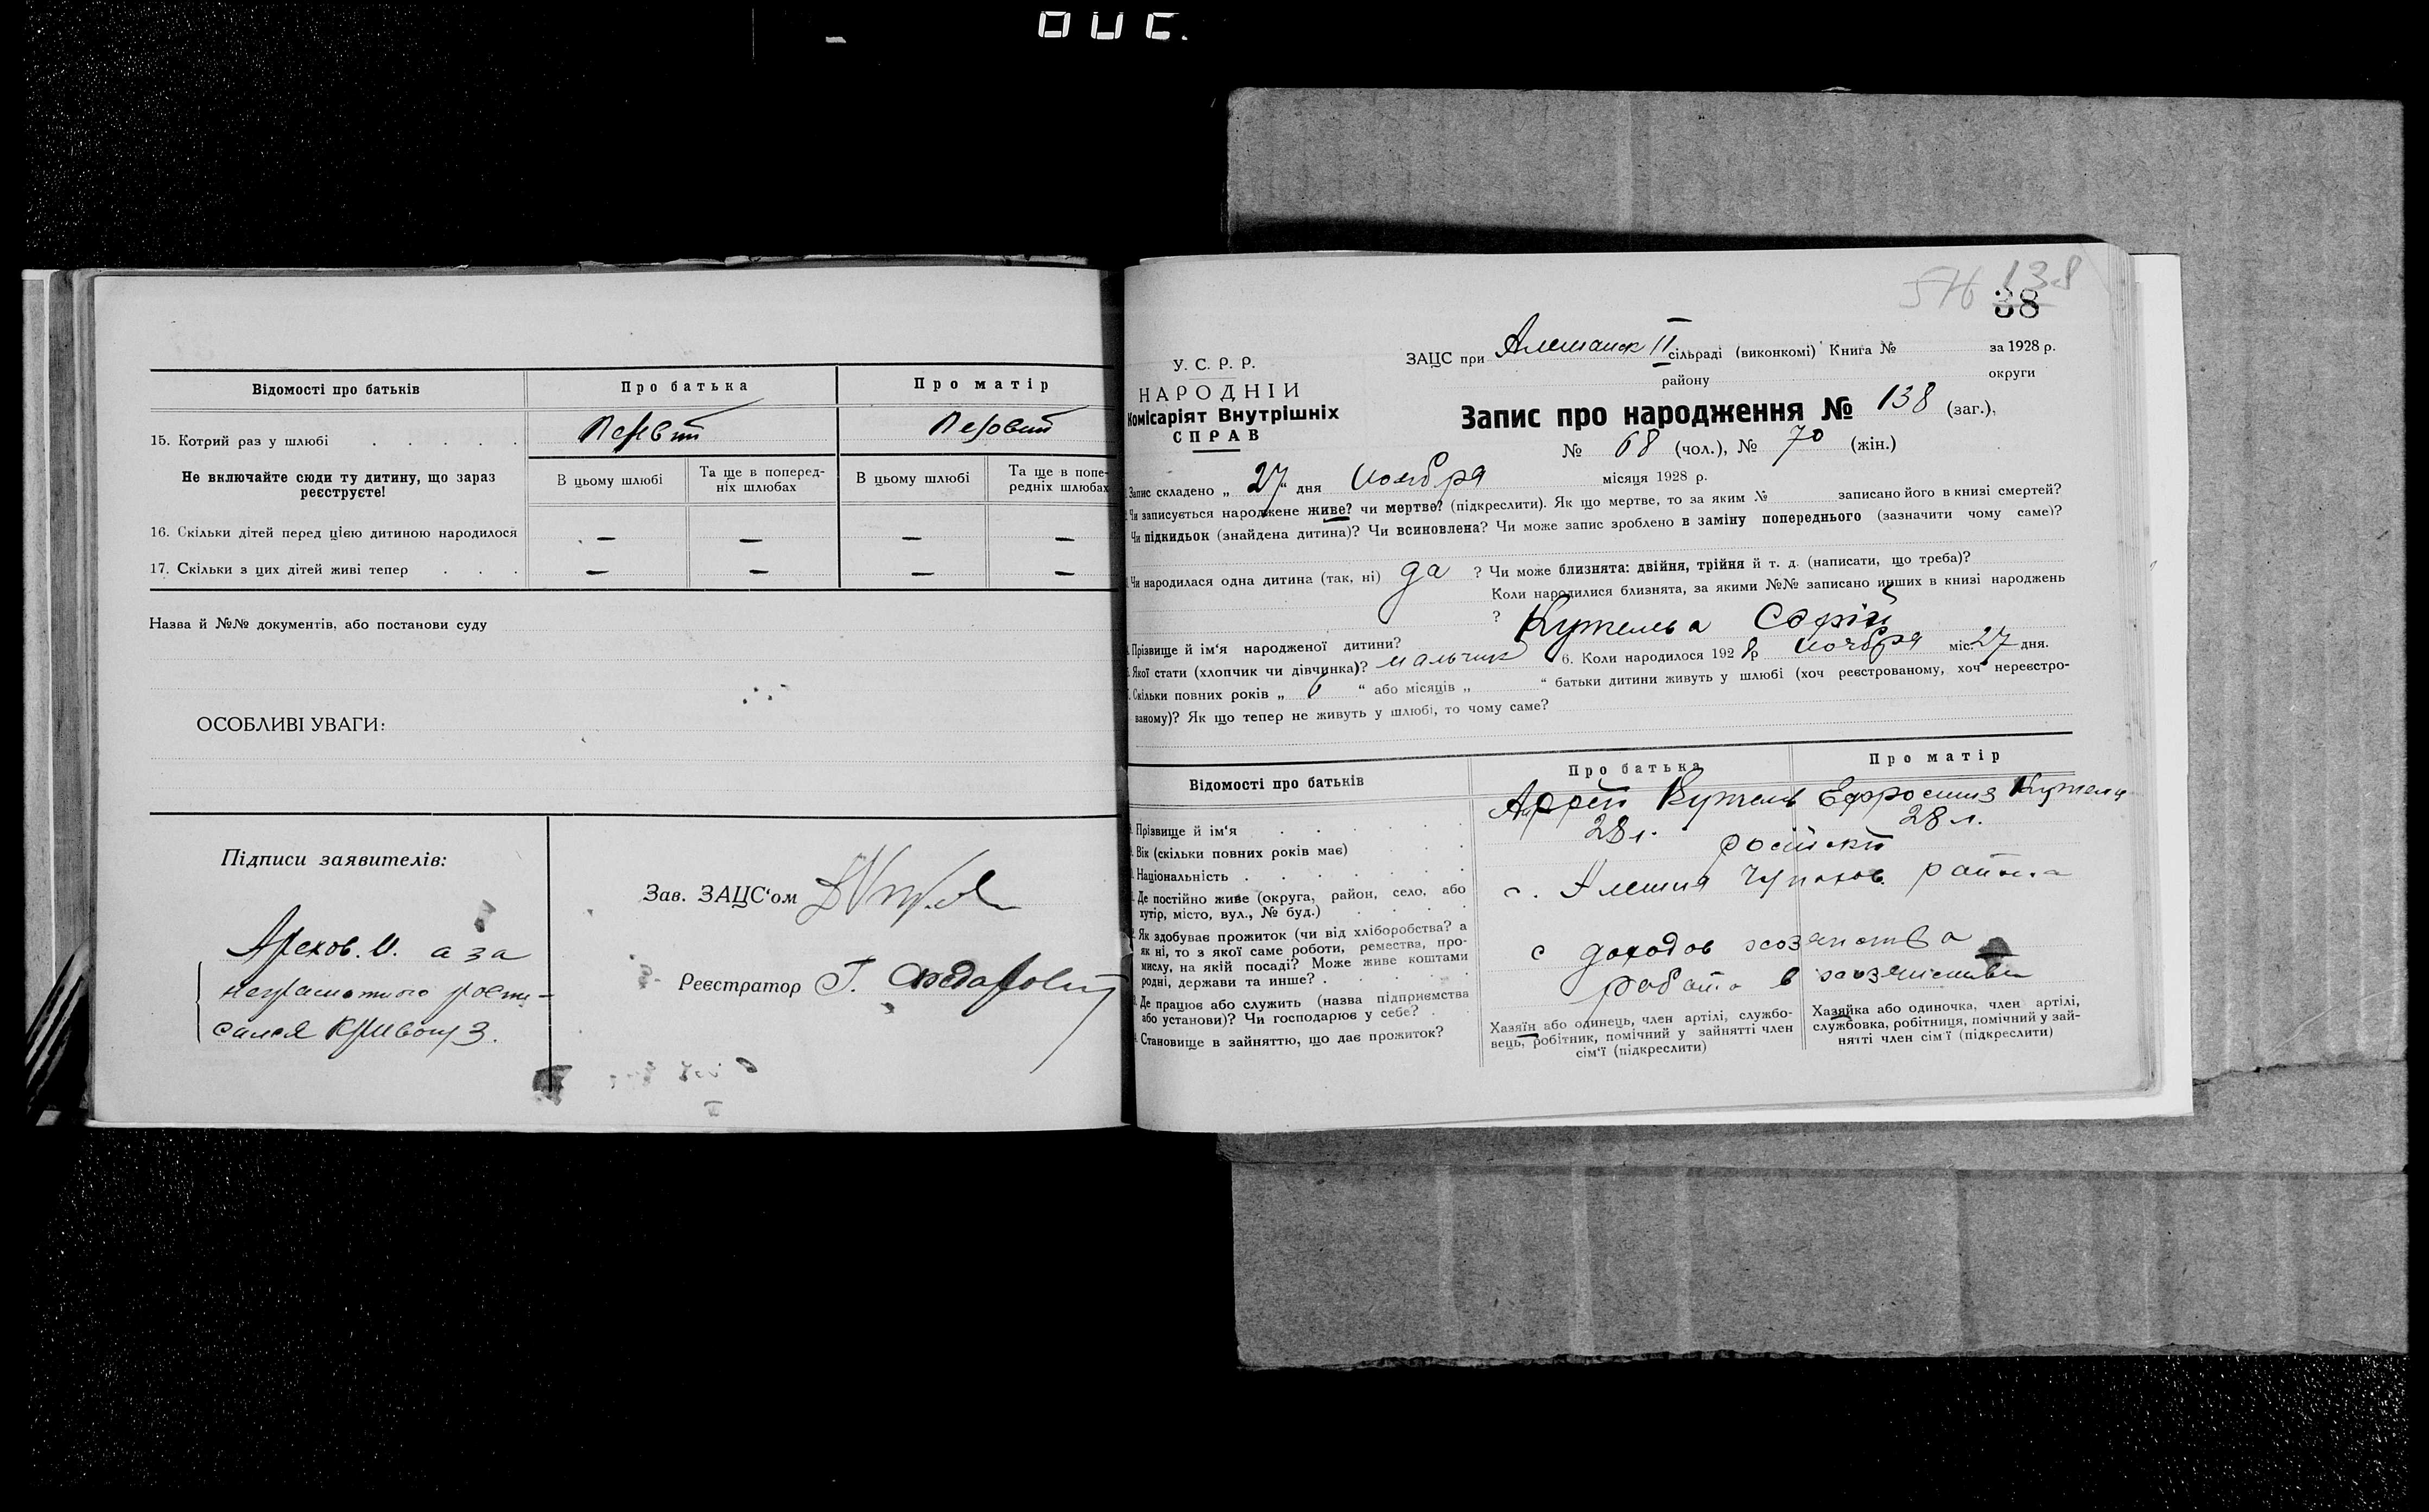 Відомості про батьків
Про батька
Про матір
15. Котрий раз у шлюбі
Первий
Первий
Не включайте сюди ту дитину, що зараз
реєструєте!
В цьому шлюбі
Та ще в поперед-
ніх шлюбах
В цьому шлюбі
Та ще в попе-
редніх шлюбах
16. Скільки дітей перед цією дитиною народилося
— — — —
17. Скільки з цих дітей живі тепер
— — — —
Назва й №№ документів, або постанови суду
ОСОБЛИВІ УВАГИ:
Підписи заявителів:
а за
неграмотного роспи-
сался
Зав. ЗАЦС‘ом
Реєстратор
138
38
У. С. Р. Р.
НАРОДНІЙ
Комісаріят Внутрішніх
СПРАВ
ЗАЦС при Алешанск II сільраді (виконкомі) Книга № за 1928 р.
району округи
Запис про народження № 138 (заг.),
№ 68 (чол.), № 70 (жін.)
Запис складено „ 27 “ дня ноября місяця 1928 р.
Чи записується народжене живе? чи мертве? (підкреслити). Як що мертве, то за яким № записано його в книзі смертей?
Чи підкидьок (знайдена дитина)? Чи всиновлена? Чи може запис зроблено в заміну попереднього (зазначити чому саме)?
Чи народилася одна дитина (так, ні) да ? Чи може близнята: двійня, трійня й т. д. (написати, що треба)?
Коли народилися близнята, за якими №№ записано инших в книзі народжень
?
Прізвище й ім‘я народженої дитини?
Якої стати (хлопчик чи дівчинка)? мальчик 6. Коли народилося 1928 р ноября міс. 27 дня.
Скільки повних років „ 6 “ або місяців „ “ батьки дитини живуть у шлюбі (хоч реєстрованому, хоч нереєстро-
ваному)? Як що тепер не живуть у шлюбі, то чому саме?
Відомості про батьків
Про батька
Про матір
Прізвище й ім‘я
Вік (скільки повних років має) 28 л. 28 л.
Національність
Де постійно живе (округа, район, село, або
хутір, місто, вул., № буд.)
с. Алешня Чупахов. района
Як здобуває прожиток (чи від хліборобства? а
як ні, то з якої саме роботи, ремества, про-
мислу, на якій посаді? Може живе коштами
родні, держави та инше?
с доходов хозяйства
Де працює або служить (назва підприємства
або установи)? Чи господарює у себе?
работа в хозяйстве
Становище в зайняттю, що дає прожиток?
Хазяїн або одинець, член артілі, службо-
вець, робітник, помічний у зайнятті член
сім‘ї (підкреслити)
Хазяйка або одиночка, член артілі,
службовка, робітниця, помічний у зай-
нятті член сім‘ї (підкреслити)